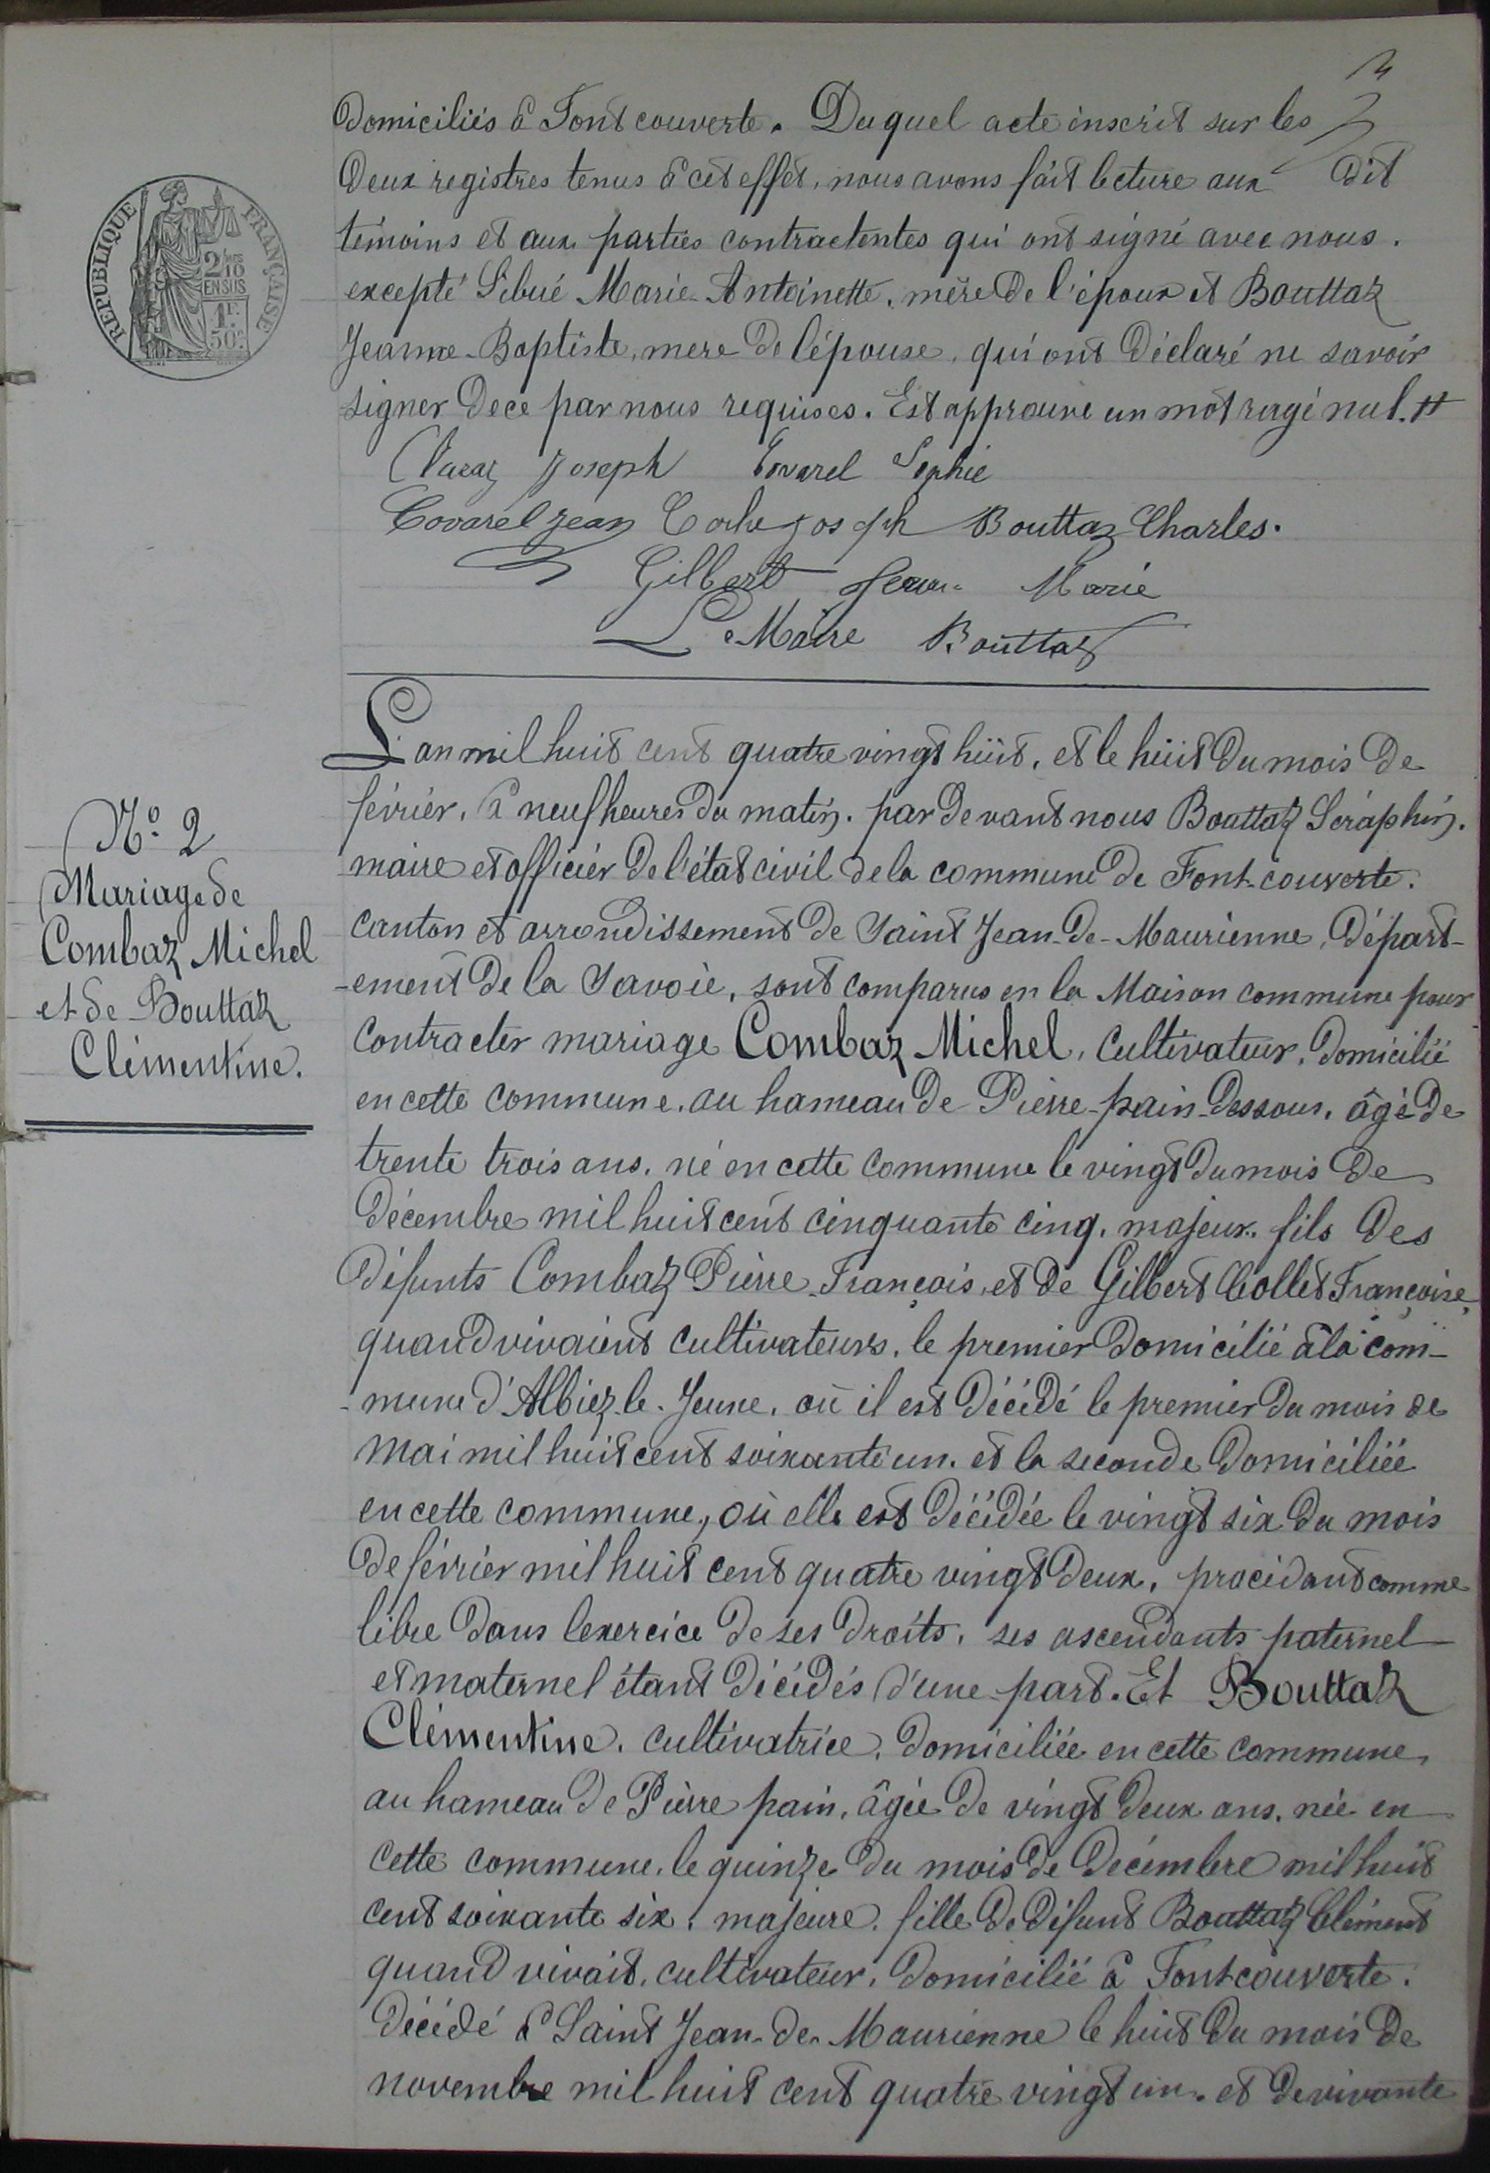 domiciliés à Fontcouverte. Duquel acte inscrit sur les
deux registres tenus à cet effet, nous avons fait lecture aux dit
témoins et aux parties contractentes qui ont signé avec nous.
excepté Sibué Marie-Antoinette, mère de l'époux et Bouttaz
Jeanne-Baptiste, mere de l'épouse, qui ont déclaré ne savoir
signer de ce par nous requises. Est approuve un mot rayé nul.
Joseph Covarel Sophie
Covarel jean joseph Bouttaz Charles.
Gilbert Jean Marie
Le Maire Bouttaz
REPUBLIQUE FRANÇAISE
2/10
EN SUS
1F
50c
N° 2
Mariage de
Combaz Michel
et de Bouttaz
Clémentine.
L'an mil huit cent quatre vingt huit, et le huit du mois de
février, à neuf heures du matin. par devant nous Bouttaz Séraphin.
maire et officier de l'état civil de la commune de Font-couverte.
canton et arrondissement de Saint Jean-de-Maurienne, départ-
-ement de la Savoie, sont comparus en la Maison commune pour
contracter mariage Combaz Michel, cultivateur, domicilié
en cette commune, au hameau de Pierre-pain-dessous, âgé de
trente trois ans, né en cette commune le vingt du mois de
décembre mil huit cent cinquante cinq, majeur, fils des
défunts Combaz Pierre-François, et de Gilbert Collet Françoise,
quand vivaient cultivateurs, le premier domicilié à la com-
-mune d'Albiez-le-Jeune, où il est décédé le premier du mois de
mai mil huit cent soixante un. et la seconde domiciliée
en cette commune, où elle est décédée le vingt six du mois
de février mil huit cent quatre vingt deux, procédant comme
libre dans l'exercice de ses droits, ses ascendants paternel
et maternel étant décédés d'une part. Et Bouttaz
Clémentine, cultivatrice, domiciliée en cette commune,
au hameau de Pierre pain, âgée de vingt deux ans, née en
cette commune, le quinze du mois de décembre mil huit
cent soixante six, majeure, fille de défunt Bouttaz Clément
quand vivait, cultivateur, domicilié à Fontcouverte.
décédé à Saint Jean-de-Maurienne le huit du mois de
novembre mil huit cent quatre vingt un. et de vivante